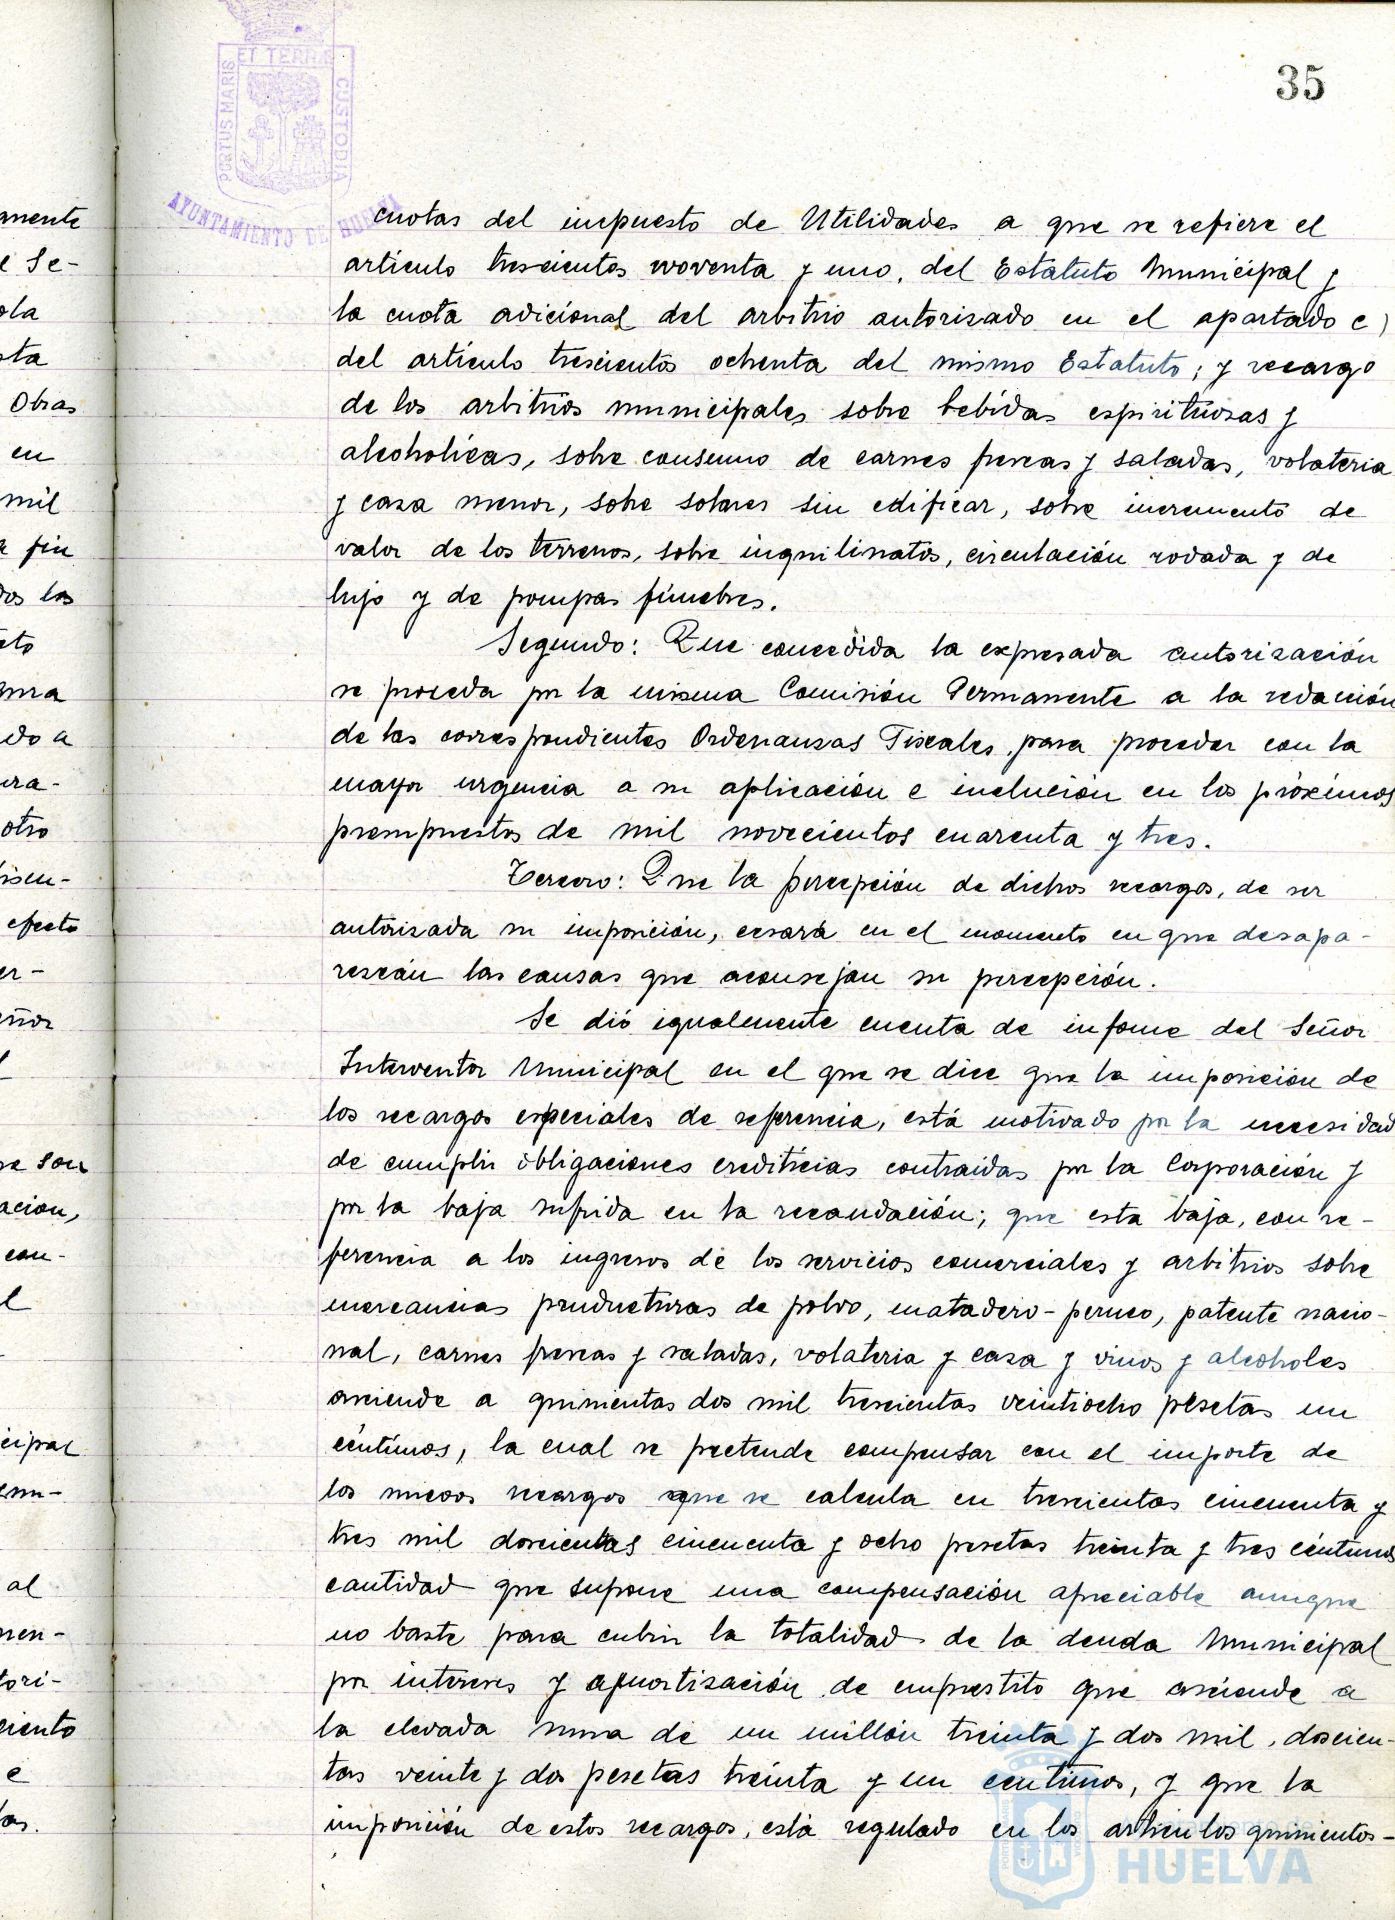 35
PORTUS MARIS ET TERRAE CUSTODIA
AYUNTAMIENTO DE HUELVA
cuotas del impuesto de Utilidades a que se refiere el
articulo trescientos noventa y uno, del Estatuto Municipal y
la cuota adicional del arbitrio autorizado en el apartado c)
del artículo trescientos ochenta del mismo Estatuto; y recargo
de los arbitrios municipales sobre bebidas espirituosas y
alcoholicas, sobre consumo de carnes frescas y saladas, volateria
y caza menor, sobre solares sin edificar, sobre incremento de
valor de los terrenos, sobre inquilinatos, circulación rodada y de
lujo y de pompas fúnebres.
Segundo: Que concedida la expresada autorización
se proceda por la misma Comisión Permanente a la redacción
de las correspondientes Ordenanzas Fiscales, para proceder con la
mayor urgencia a su aplicación e inclución en los próximos
presupuestos de mil novecientos cuarenta y tres.
Tercero: Que la percepción de dichos recargos, de ser
autorizada su imposición, cesará en el momento en que desapa-
rescán las causas que aconsejan su percepción.
Se dió igualmente cuenta de informe del Señor
Interventor Municipal en el que se dice que la imposición de
los recargos especiales de referencia, está motivado por la necesidad
de cumplir obligaciones crediticias contraidas por la Corporación y
por la baja sufrida en la recaudación; que esta baja, con re-
ferencia a los ingresos de los servicios comerciales y arbitrios sobre
mercancias productoras de polvo, matadero-perneo, patente nacio-
nal, carnes frescas y saladas, volateria y caza y vinos y alcoholes
asciende a quinientas dos mil trescientas veintiocho pesetas un
céntimos, la cual se pretende compensar con el importe de
los nuevos recargos que se calcula en trescientas cincuenta y
tres mil doscientas cincuenta y ocho pesetas treinta y tres céntimos
cantidad que supone una compensación apreciable aunque
no baste para cubrir la totalidad de la deuda Municipal
por intereses y amortización de emprestito que asciende a
la elevada suma de un millón treinta y dos mil, doscien-
tas veinte y dos pesetas treinta y un centimos, y que la
imposición de estos recargos, está regulado en los articulos quinientos-
HUELVA